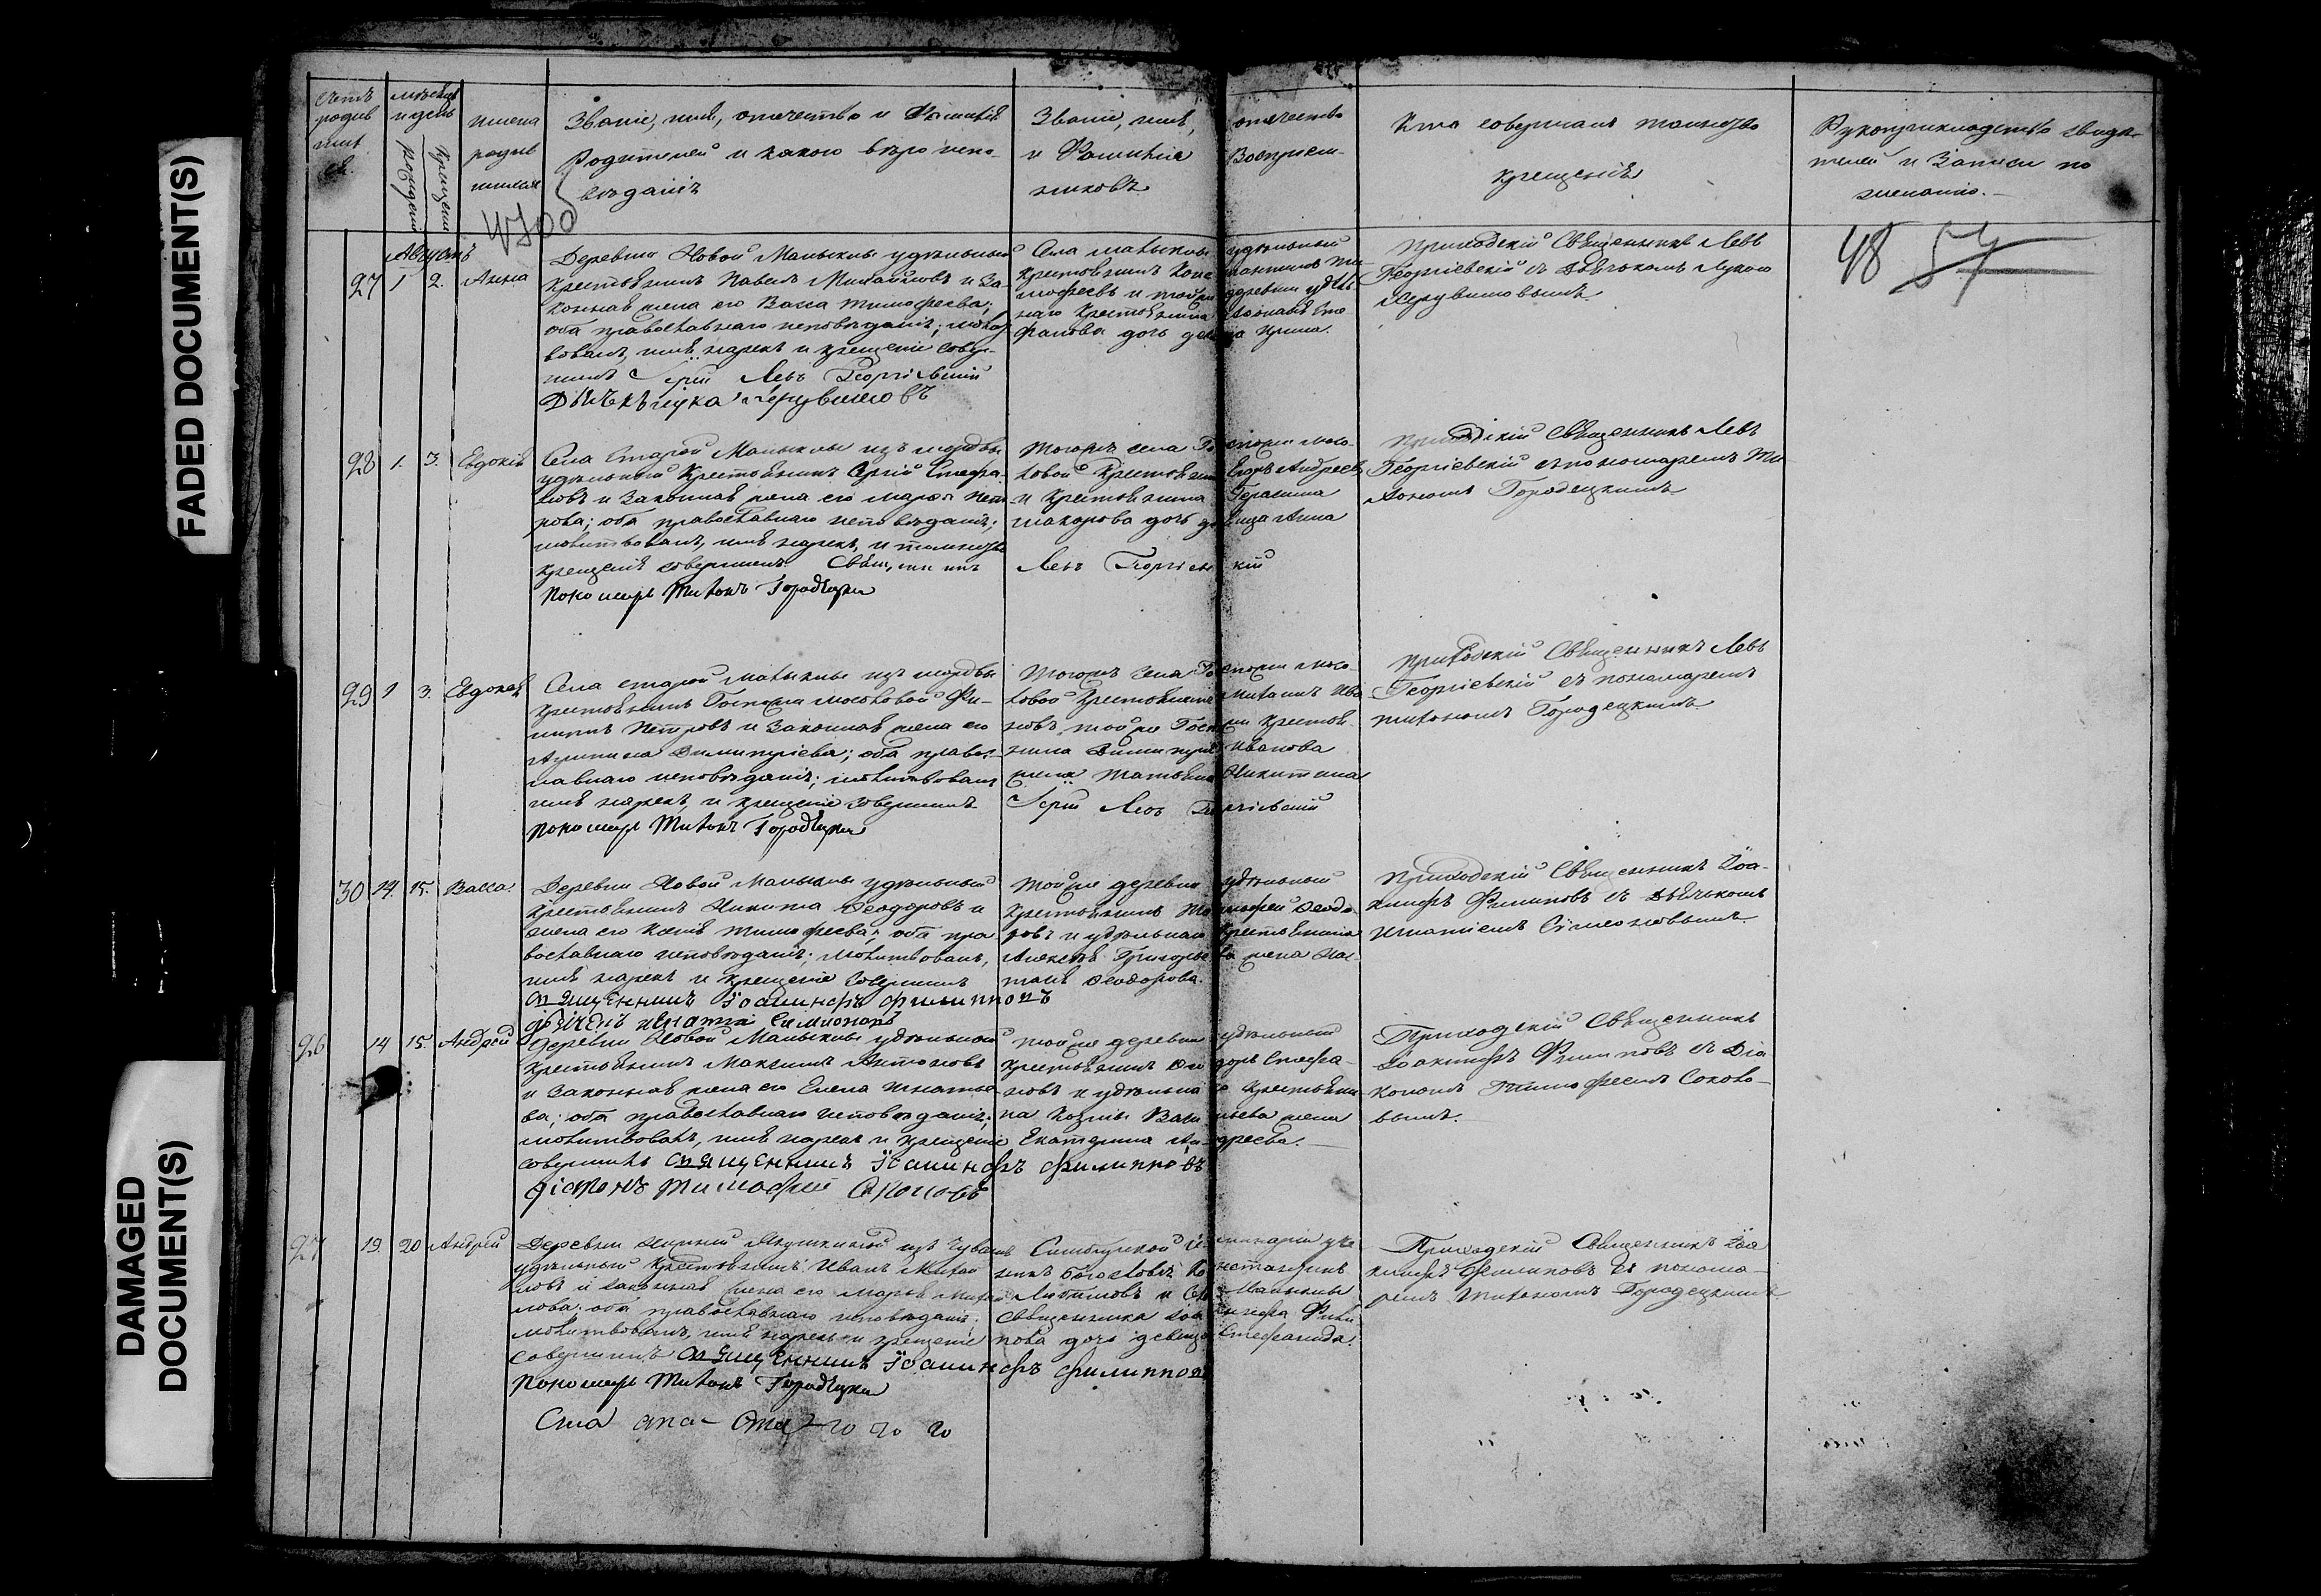 FADED DOCUMENT(S)
DAMAGED
DOCUMENT(S)
Счетъ
родив
ших
ся.
мѣсяцъ
и день
рожденія
крещенія
имена
родив
шихся
Званіе, имя, отчество и Фамилія
Родителей и какого вѣроиспо-
вѣданія
Званіе, имя, отчество
и Фамилія Воспріем-
никовъ
Кто совершалъ таинство
крещенія
Рукоприкладство свидѣ-
телей и Записи по
желанію.
4700
48 57
Августъ
27 1 2. Анна
Деревни Новой Малыклы удѣльный
Крестьянинъ Павелъ Михайловъ и За-
конная жена его Васса Тимофеева;
оба православнаго исповѣданія; молит
вовалъ, имя нарекъ и крещеніе совер-
шилъ Іерей Левъ Георгіевскій
Дьячекъ Лука Херувимовъ
Села Малыклы удѣльный
Крестьянинъ Константинъ Ти
мофеевъ и той же деревни удѣль
наго Крестьянина Сте
фанова дочь девица Ирина.
Приходскій Священникъ Левъ
Георгіевскій съ Дьячькомъ Лукою
Херувимовымъ
28 1. 3. Евдокія
Села Старой Малыклы изъ мордвы
удѣльный Крестьянинъ Сергій Стефа-
новъ и Законная жена его Марфа Пет-
рова; оба православнаго исповѣданія;
молитвовалъ, имя нарекъ, и таинство
крещенія совершилъ Священникъ Левъ Георгіевскій
Пономарь Тихонъ Городецкій
Тогожъ села Господи Мосо-
ловой Крестьянинъ Егоръ Андреевъ
и Крестьянина Герасима
Макарова дочь девица Анна
Приходскій Священникъ Левъ
Георгіевскій съ пономаремъ Ти
хономъ Городецкимъ
29 1 3. Евдокія
Села старой Малыклы изъ мордвы
Крестьянинъ Госпожи Мосоловой Фи-
липпъ Петровъ и Законная жена его
Димитріева; оба правос-
лавнаго исповѣданія; молитвовалъ
имя нарекъ, и крещеніе совершилъ Іерей Левъ Георгіевскій
Пономарь Тихонъ Городецкій
Тогожъ села Госпожи Мосо-
ловой Крестьянинъ Михаилъ Ива
новъ, той же Госпожи Крестья
нина Димитрія Иванова
жена Татьяна Никитина
Приходскій Священникъ Левъ
Георгіевскій съ пономаремъ
Тихономъ Городецкимъ
30 14. 15. Васса.
Деревни Новой Малыклы удѣльный
Крестьянинъ Никита Ѳеодоровъ и
жена его Ксенія Тимофеева; оба пра-
вославнаго исповѣданія; молитвовалъ,
имя нарекъ и крещеніе совершилъ
Священникъ Іоакинфъ Филипповъ
дьячекъ Игнатій Симеоновъ
Той же деревни удѣльный
Крестьянинъ Тимофей Ѳеодо-
ровъ и удѣльнаго Крестьянина
Алексѣя Григорьева жена Нас-
тасія Ѳеодорова.
Приходскій Священникъ Іоа-
кинфъ Филиповъ съ Дьячькомъ
Игнатіемъ Симеоновымъ
26 14 15. Андрей
Деревни Новой Малыклы удѣльный
Крестьянинъ Максимъ Антоновъ
и Законная жена его Елена Игнатье
ва; оба православнаго исповѣданія;
молитвовалъ, имя нарекъ и крещеніе
совершилъ Священникъ Іоакинфъ Филипповъ
діаконъ Тимофей Соколовъ
той же деревни удѣльный
Крестьянинъ Ѳеодоръ Стефа-
новъ и удѣльнаго Крестьяни-
на Козмы Васильева жена
Екатерина Андреева.
Приходскій Священникъ
Іоакинфъ Филиповъ съ Діа
кономъ Тимофеемъ Соколо-
вымъ.
27 19. 20 Андрей
Деревни изъ Чувашъ
удѣльный Крестьянинъ Иванъ Михай
ловъ и законная жена его Марья Михай
лова; оба православнаго исповѣданія;
молитвовалъ, имя нарекъ и крещеніе
совершилъ Священникъ Іоакинфъ Филипповъ
Пономарь Тихонъ Городецкій
Симбирской Семинаріи уче
никъ Богословія Константинъ
Любимовъ и Села Малыклы
Священника Іоакинфа Фили
пова дочь девица Стефанида.
Приходскій Священникъ Іоа
кинфъ Филиповъ съ понома-
ремъ Тихономъ Городецкимъ